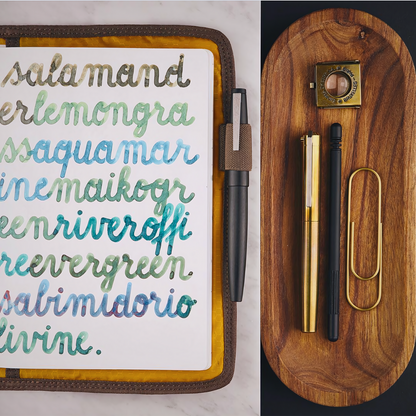 salamand
erlemongra
ssaquamar
inemaikogr
eenriveroffi
reevergreen
sabimidorio
livine.